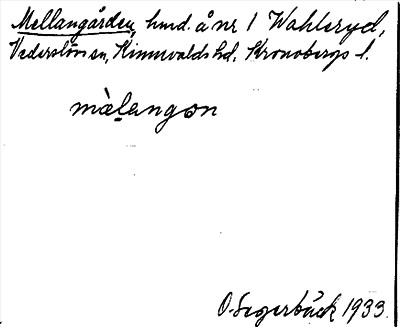 Mellangården, hmd. å nr 1 Wahlsryd,
Vederslövs sn, Kinnevalds hd, Kronobergs l.
màlangon
O. Segerbäck 1933.